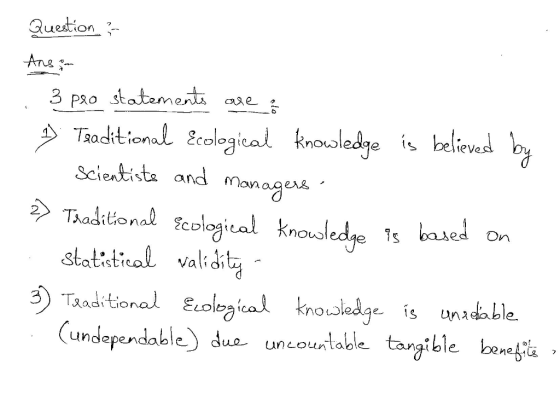 Question :-
Ans :-
3 pro statements are :
1) Traditional Ecological knowledge is believed by
Scientists and managers.
2) Traditional Ecological knowledge is based on
Statistical validity -
3) Traditional Ecological knowledge is unreliable
(undependable) due uncountable tangible benefits,